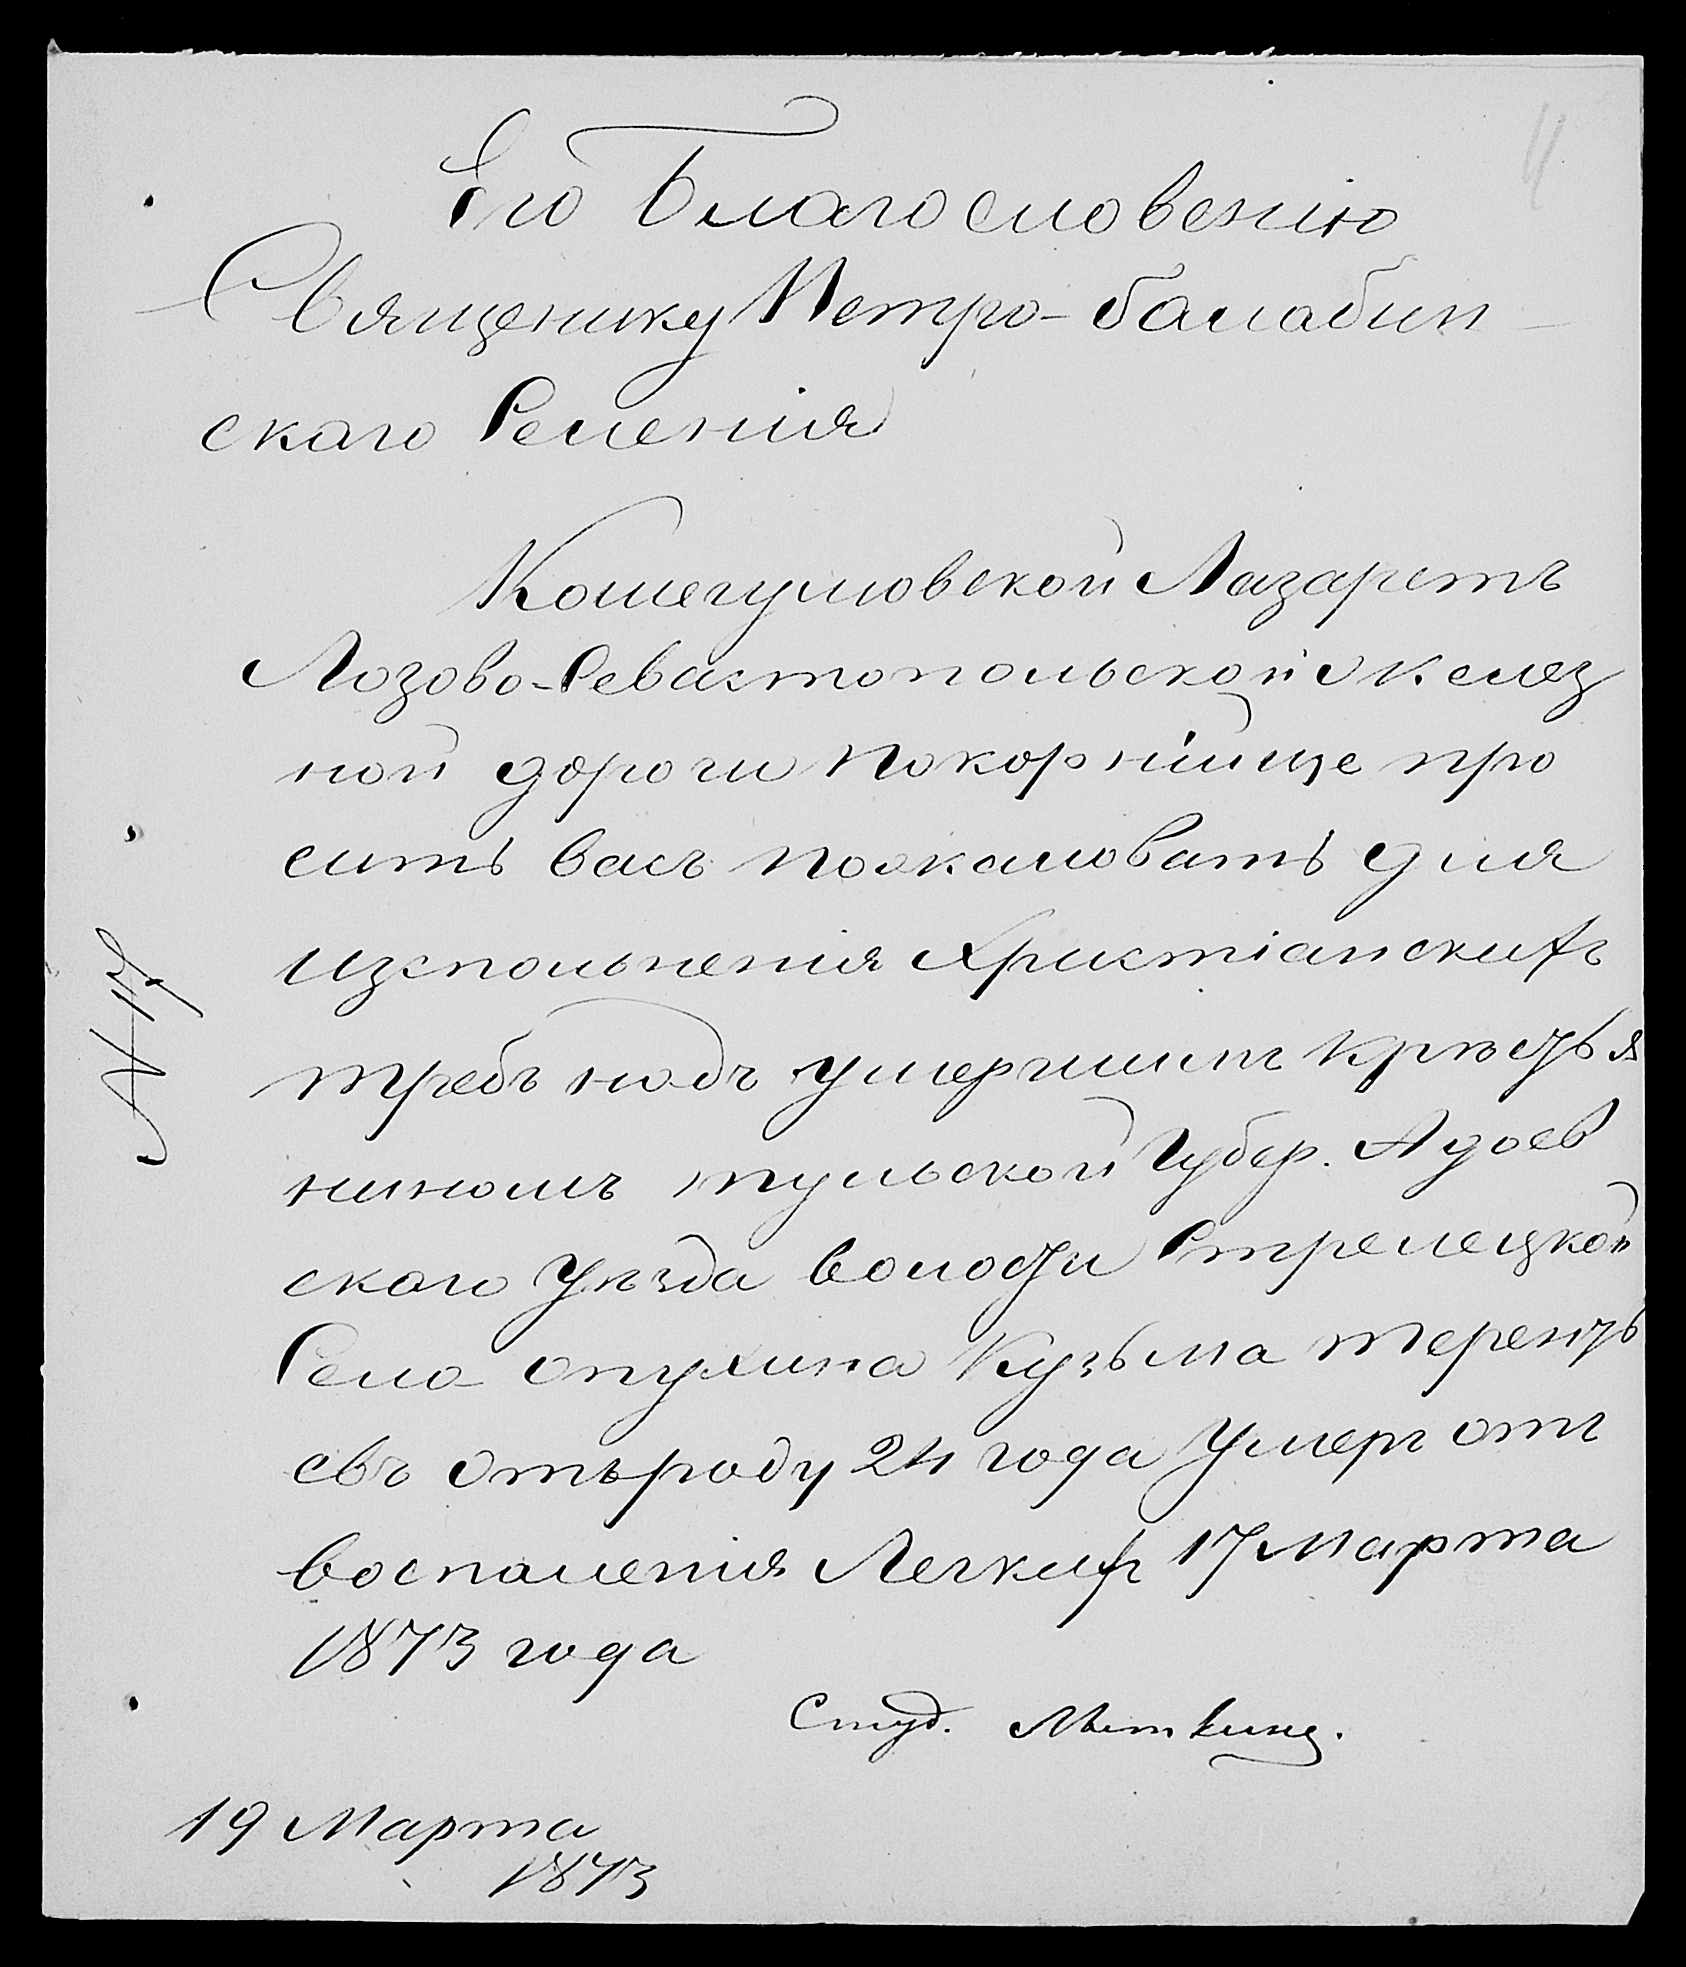 Его Благословенію
Священику Петро-балабин-
скаго Селенія
Кошегумовской Лазаретъ
Лозово-Севастопольской желез
ной дороги покорнійще про
ситъ васъ пожаловать для
изспольненія Христіанскихъ
требъ надъ умершимъ крѣстья
ниномъ тульской Губер. Адоев
скаго Уѣзда волости Стрелецкой
Села опухина Кузьма терентъ
евъ отъроду 24 года Умеръ отъ
воспаленія Легкихъ 17 марта
1873 года
Студ.
19 Марта
1873